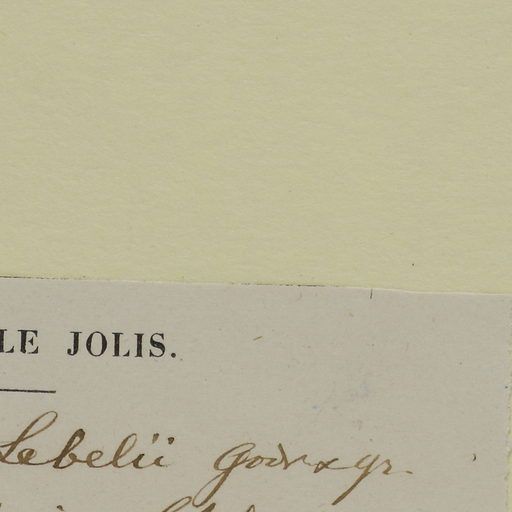 LE JOLIS.
Lebelii Godr & gr.